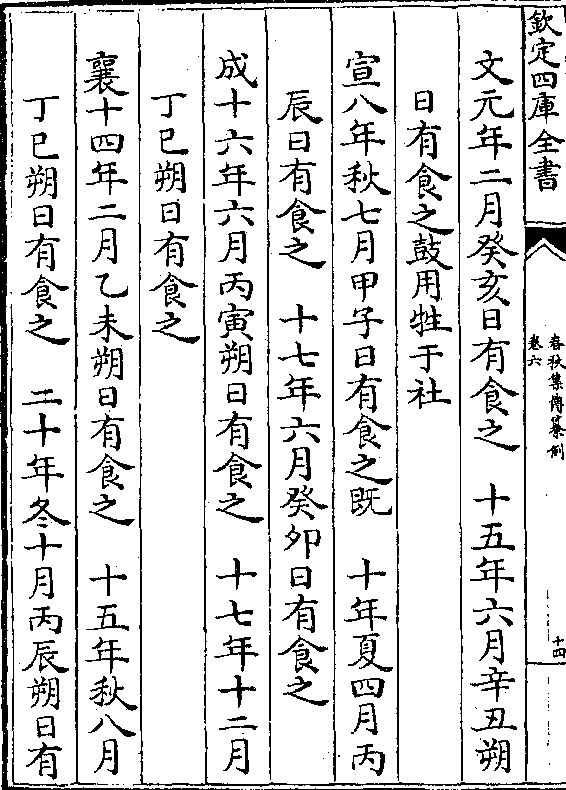 欽定四庫全書
春秋集傳纂例
卷六
十四
文元年二月癸亥日有食之　十五年六月辛丑朔
日有食之鼓用牲于社
宣八年秋七月甲子日有食之既　十年夏四月丙
辰日有食之　十七年六月癸卯日有食之
成十六年六月丙寅朔日有食之　十七年十二月
丁巳朔日有食之
襄十四年二月乙未朔日有食之　十五年秋八月
丁巳朔日有食之　二十年冬十月丙辰朔日有